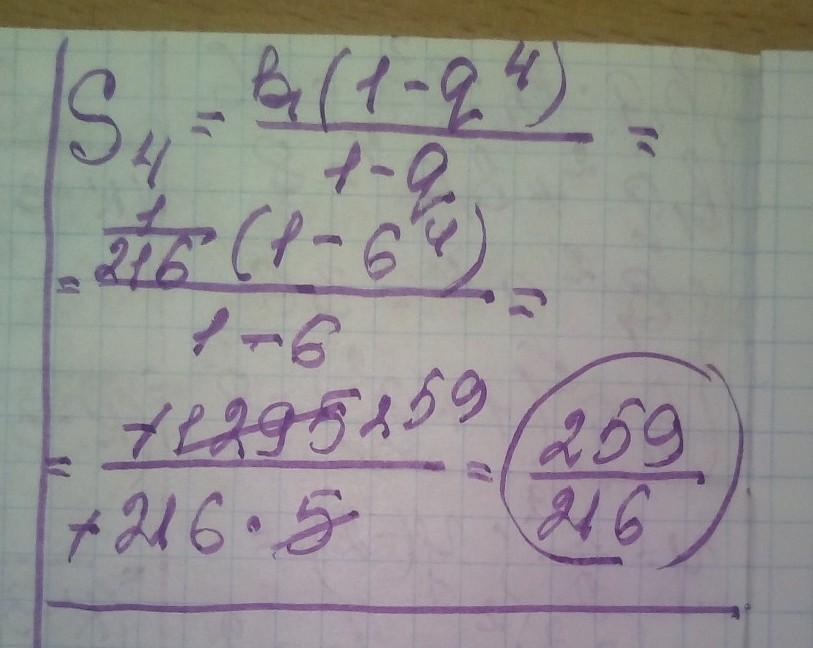 S₄ = b₁(1-q⁴) / 1-q =
= 1/216 (1-6⁴) / 1-6 =
= +1295 259 / +216·5 = 259/216